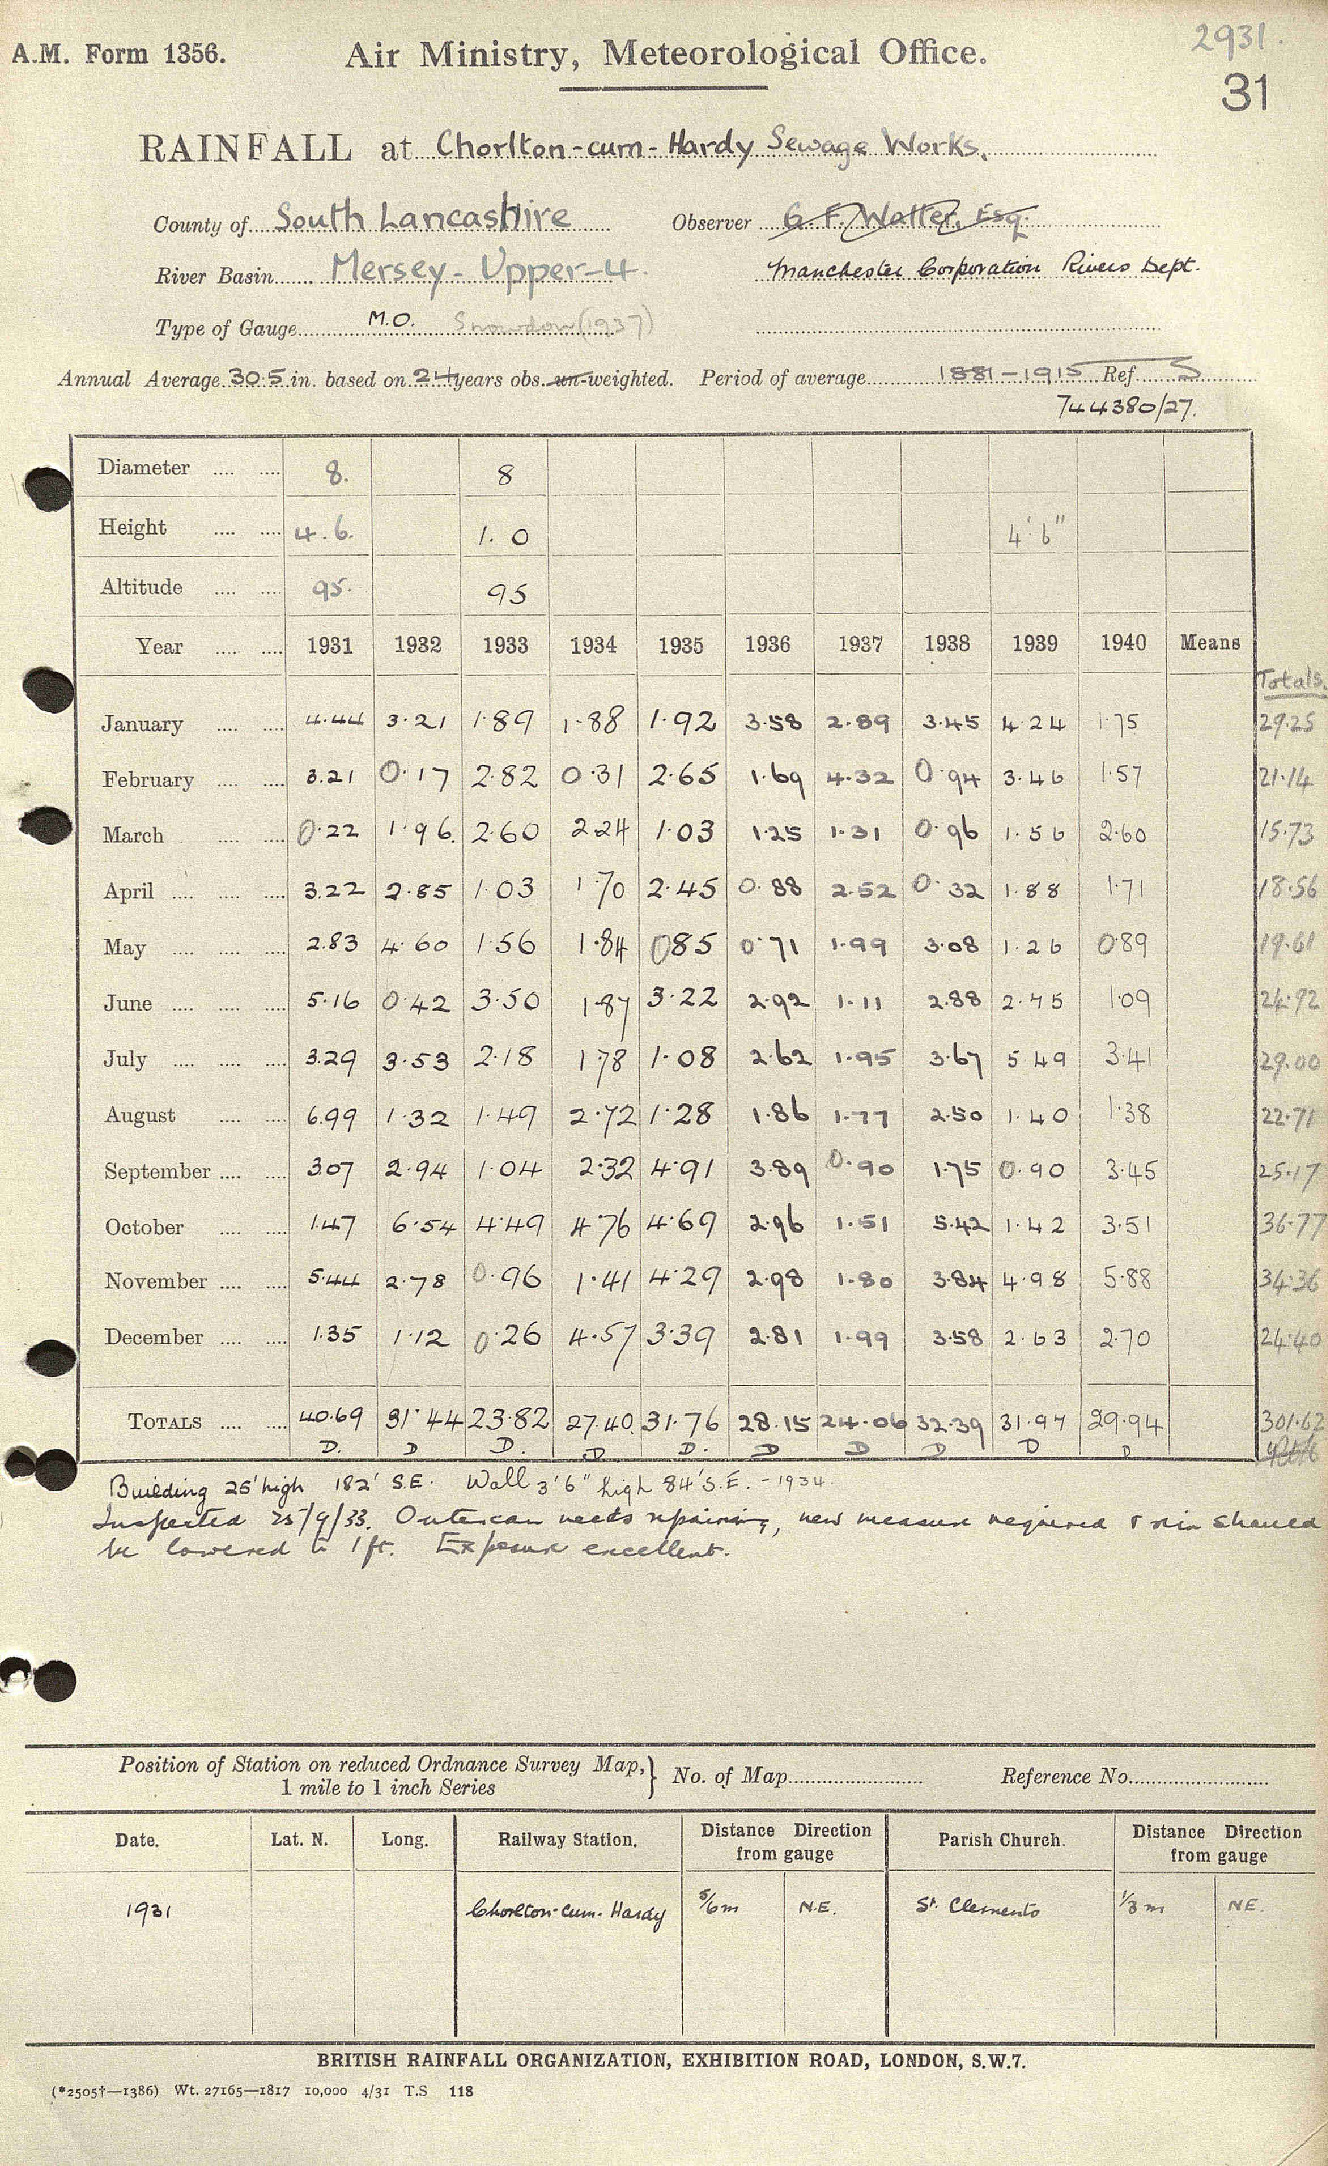 2931.
A.M. Form 1356. Air Ministry, Meteorological Office.
31
RAINFALL at Chorlton-cum-Hardy Sewage Works.
County of South Lancashire Observer G. F. Watter, Esq.
River Basin Mersey-Upper-4. Manchester Corporation Rivers Dept.
Type of Gauge M.O. Snowdon (1937)
Annual Average 30.5 in. based on 24 years obs. un-weighted. Period of average 1881-1915 Ref. S
744380/27.
Diameter .... .... 8. 8
Height .... .... 4.6. 1.0 4'6"
Altitude .... .... 95. 95
Year .... .... 1931 1932 1933 1934 1935 1936 1937 1938 1939 1940 Means
Totals.
January .... .... 4.44 3.21 1.89 1.88 1.92 3.58 2.89 3.45 4.24 1.75 29.25
February .... .... 3.21 0.17 2.82 0.31 2.65 1.69 4.32 0.94 3.46 1.57 21.14
March .... .... 0.22 1.96 2.60 2.24 1.03 1.25 1.31 0.96 1.56 2.60 15.73
April .... .... .... 3.22 2.85 1.03 1.70 2.45 0.88 2.52 0.32 1.88 1.71 18.56
May .... .... .... 2.83 4.60 1.56 1.84 0.85 0.71 1.99 3.08 1.26 0.89 19.61
June .... .... .... 5.16 0.42 3.50 1.87 3.22 2.92 1.11 2.88 2.75 1.09 24.92
July .... .... .... 3.29 3.53 2.18 1.78 1.08 2.62 1.95 3.67 5.49 3.41 29.00
August .... .... 6.99 1.32 1.49 2.72 1.28 1.86 1.77 2.50 1.40 1.38 22.71
September .... .... 3.07 2.94 1.04 2.32 4.91 3.89 0.90 1.75 0.90 3.45 25.17
October .... .... 1.47 6.54 4.49 4.76 4.69 2.96 1.51 5.42 1.42 3.51 36.77
November .... .... 5.44 2.78 0.96 1.41 4.29 2.98 1.80 3.84 4.98 5.88 34.36
December .... .... 1.35 1.12 0.26 4.57 3.39 2.81 1.99 3.58 2.63 2.70 24.40
TOTALS .... .... 40.69 31.44 23.82 27.40 31.76 28.15 24.06 32.39 31.97 29.94 301.62
D. D D. D D. D D D D D
Building 25' high 182' S.E. Wall 3'6" high 84' S.E. - 1934
Inspected 25/9/33. Outer can needs repairing, new measure required & rim should
be lowered to 1 ft. Exposure excellent.
Position of Station on reduced Ordnance Survey Map, 1 mile to 1 inch Series } No. of Map Reference No.
Date. Lat. N. Long. Railway Station. Distance Direction from gauge Parish Church. Distance Direction from gauge
1931 Chorlton-cum-Hardy 5/6 m N.E. St. Clements 1/3 m N.E.
BRITISH RAINFALL ORGANIZATION, EXHIBITION ROAD, LONDON, S.W.7.
(*2505†—1386) Wt. 27165—1817 10,000 4/31 T.S 118